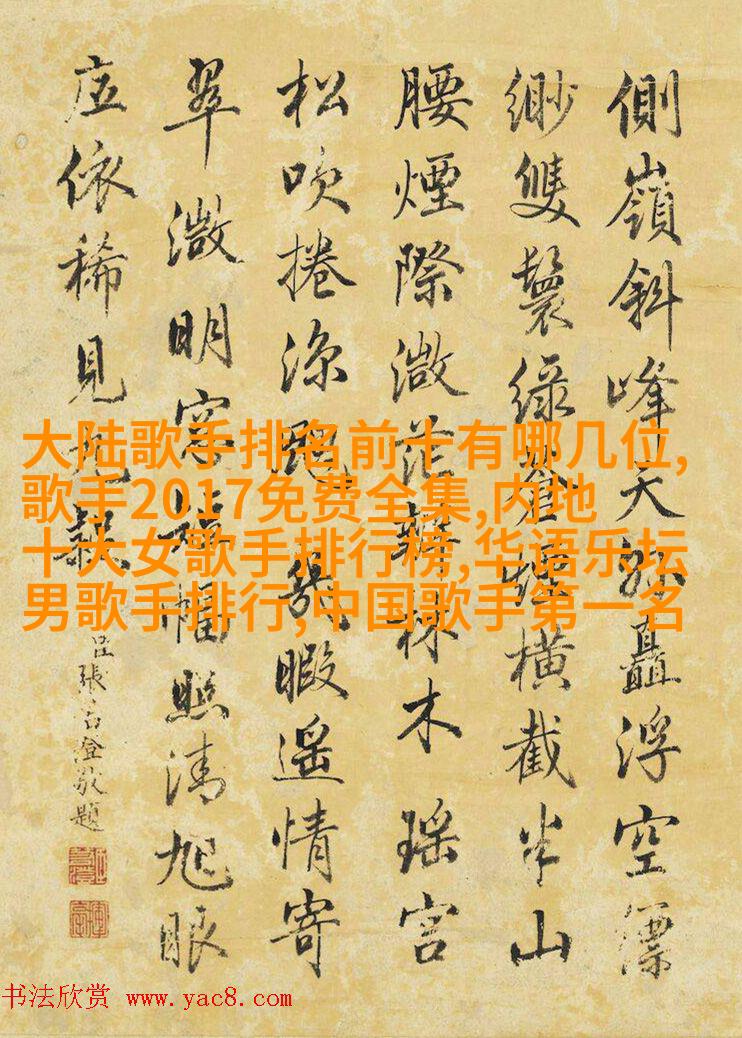 側嶺斜峰天矗浮空縹
緲雙鬟綠橫截半山
腰煙際微茫辨林木瑤宮
松吹捲涼颸幾暇遙情寄
翠微明窗幅照清旭眼
底依稀見
臣張若澄敬題
大陆歌手排名前十有哪几位,
歌手2017免费全集,内地
十大女歌手排行榜,华语乐坛
男歌手排行,中国歌手第一名
书法欣赏 www.yac8.com